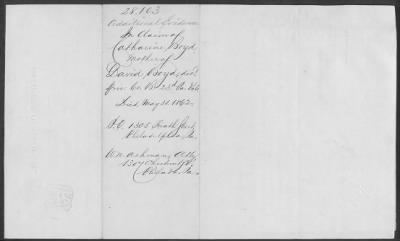 28.103
Additional Evidence
In Claim of
Catharine Boyd
Mother of
David Boyd, dec'd
Co. B 23d Pa. Vols
Died May 31. 1862.
P.O. 1305 Street
Philadelphia, Pa.
Wm. Ashman, Atty
Chestnut St.
Phila. Pa.